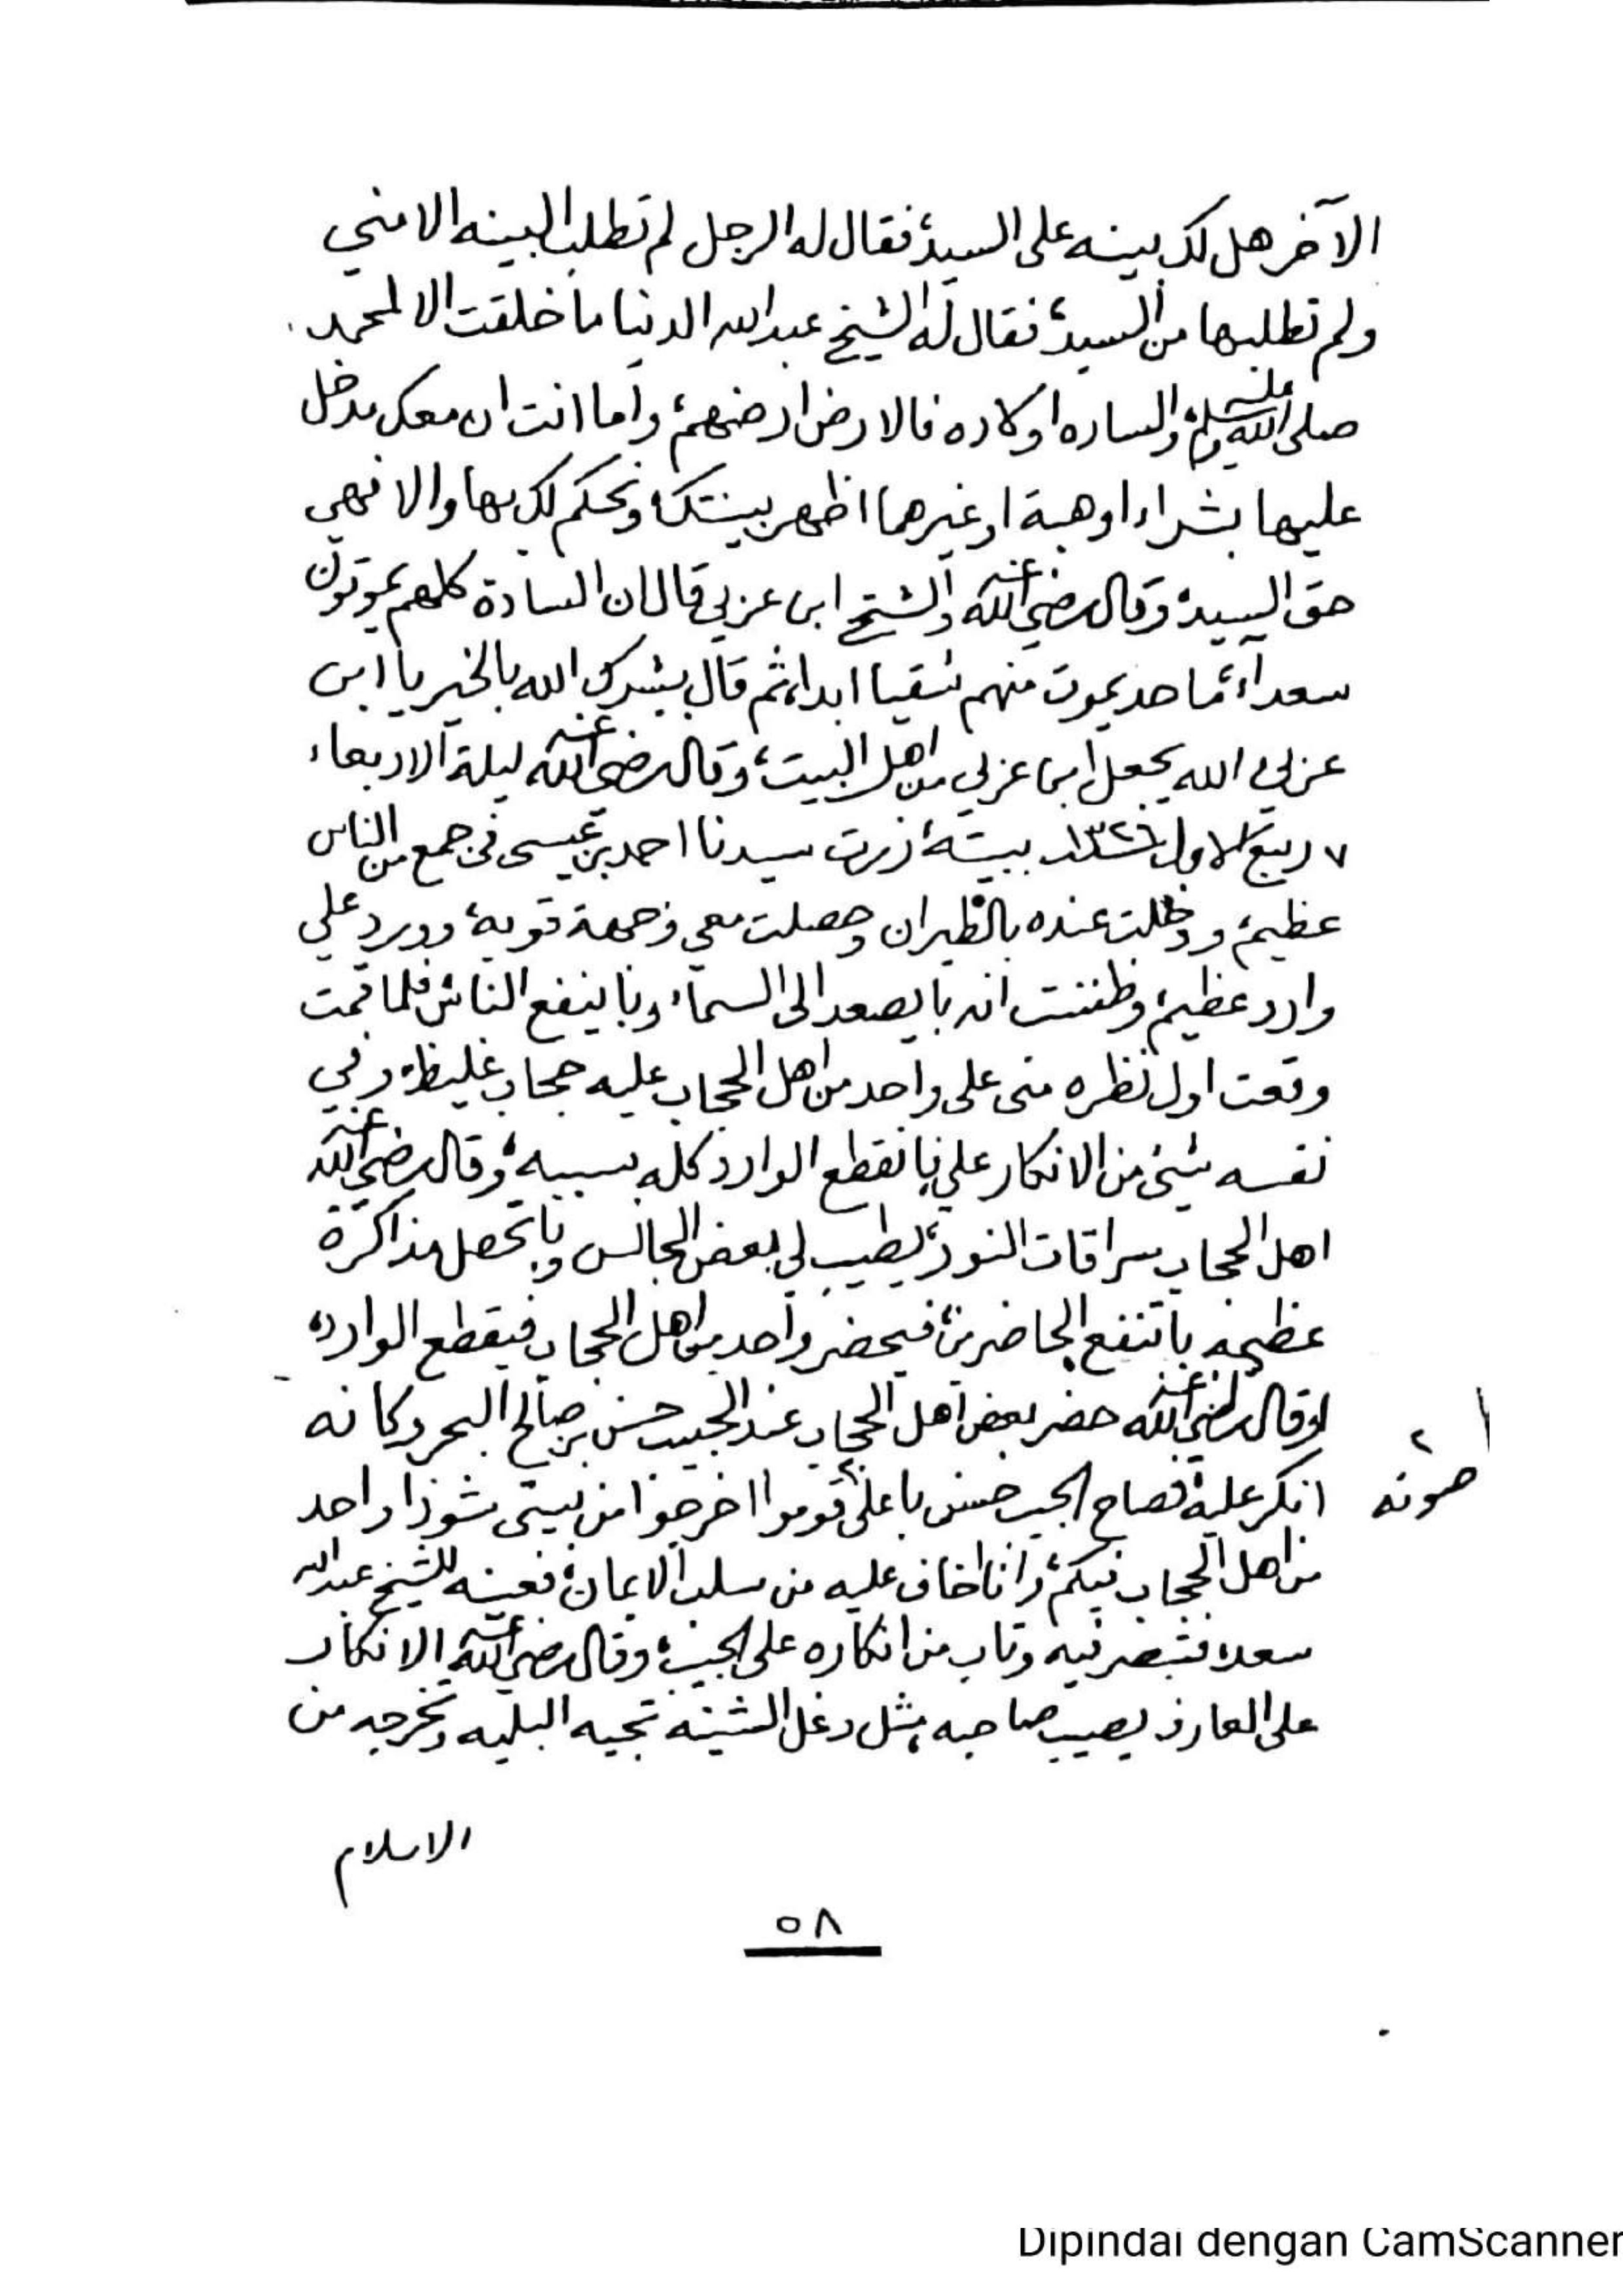 الآخر هل لك بينه على السيد؛ فقال له الرجل لم تطلب البينه الا مني
ولم تطلبها من السيد؛ فقال له الشيخ عبدالله الدنيا ما خلقت الا لمحمد
صلى الله عليه وسلم؛ والساده اولاده فالارض ارضهم؛ واما انت ان معك مدخل
عليها بشراء او هبة او غيرهما اظهر بينتك؛ ونحكم لك بها والا فهي
حق السيد؛ وقال رضي الله عنه والشيخ ابن عربي قال ان السادة كلهم يموتون
سعداء؛ ما حد يموت منهم شقيا ابدا؛ ثم قال بشرك الله بالخير يا ابن
عربي الله يجعل ابن عربي من اهل البيت؛ وقال رضي الله عنه ليلة الاربعاء
٧ ربيع الاول سنة ١٣٢٦ ببيته؛ زرت سيدنا احمد بن عيسى في جمع من الناس
عظيم؛ ودخلت عنده بالظيران وحصلت معي زحمة قويه؛ وورد علي
وارد عظيم؛ وظننت انه با يصعد الى السماء وبا ينفع الناس فلما قمت
وقعت اول نظره مني على واحد من اهل الحجاب عليه حجاب غليظ؛ وفي
نفسه شيئ من الانكار علي بانقطع الوارد كله بسببه؛ وقال رضي الله عنه
اهل الحجاب سراقات النور؛ يطيب لي بعض المجالس وبا تحصل مذاكرة
عظيمه با تنفع الحاضرين؛ فيحضر واحد من اهل الحجاب فيقطع الوارد؛
وقال رضي الله عنه حضر بعض اهل الحجاب عند الحبيب حسن بن صالح البحر وكانه
انكر عليه؛ فصاح الحبيب حسن با على قوموا اخرجوا من بيتي شوذا واحد
صوته ٢
من اهل الحجاب فيكم؛ وانا اخاف عليه من سلب الايمان؛ فعينه للشيخ عبدالله
سعد؛ فتبصر فيه وتاب من انكاره على الحبيب؛ وقال رضي الله عنه الانكار
على العارف يصيب صاحبه؛ مثل دغل الشينه تجيه البليه وتخرجه من
الاسلام
٥٨
Dipindai dengan CamScanner